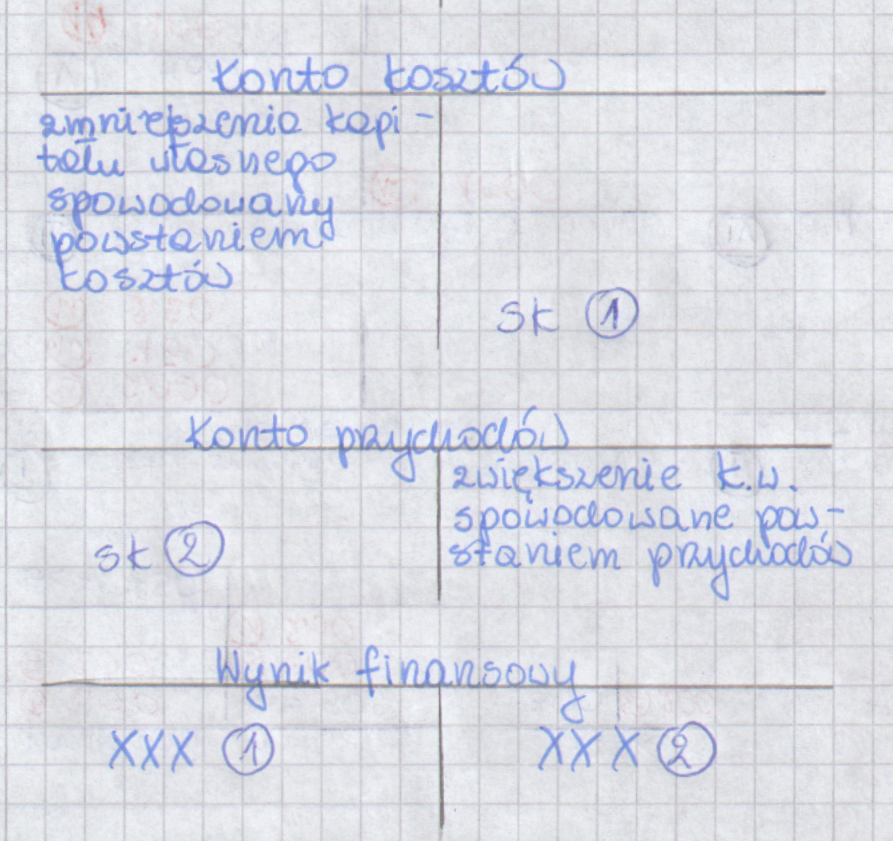 Konto kosztów
zmniejszenia kapi-
tału własnego
spowodowany
powstaniem
kosztów
sk 1
Konto przychodów
zwiększenie k.w.
spowodowane pow-
staniem przychodów
sk 2
Wynik finansowy
XXX 1
XXX 2